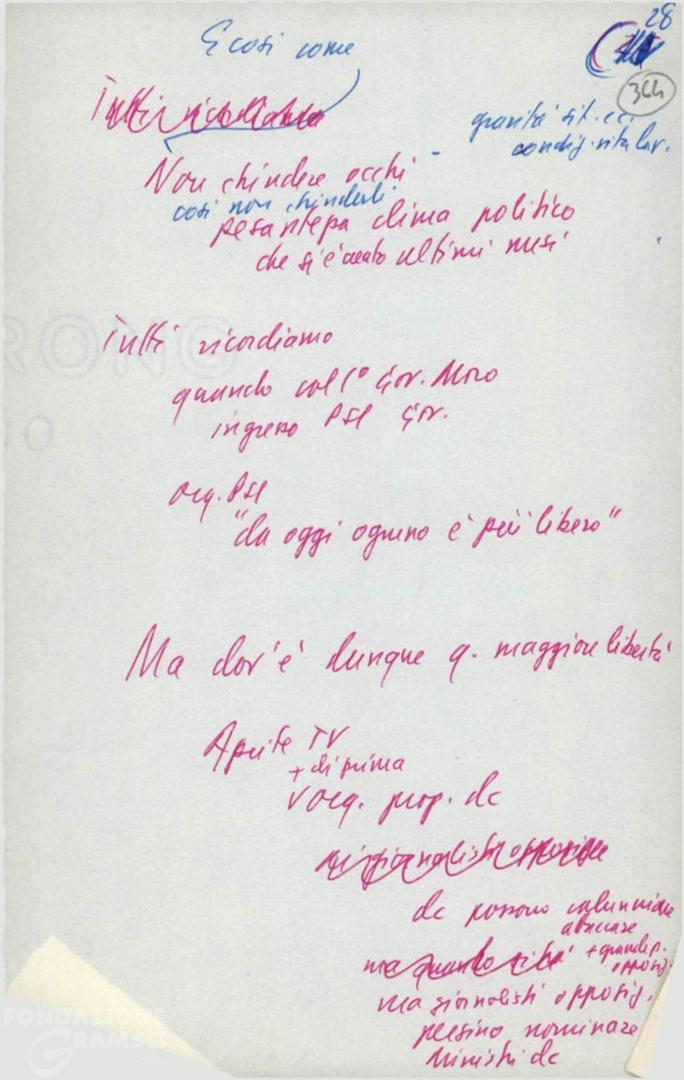 28
364
E così come
Tutti ricordiamo
gravità sit. ec.
condiz. vita lav.
Non chiudere occhi
così non chiuderli
pesantezza clima politico
che si è creato ultimi mesi
Tutti ricordiamo
quando col 1° Gov. Moro
ingresso PSI Gov.
org. PSI
"da oggi ognuno è più libero"
Ma dov'è dunque q. maggiore libertà
Aprite TV
+ di prima
org. prop. dc
giornalisti opposiz.
dc possono calunniare
attaccare
+ grande p.
opposiz.
ma quando
ma giornalisti opposiz.
persino nominare
Ministri dc
FONDAZIONE
GRAMSCI